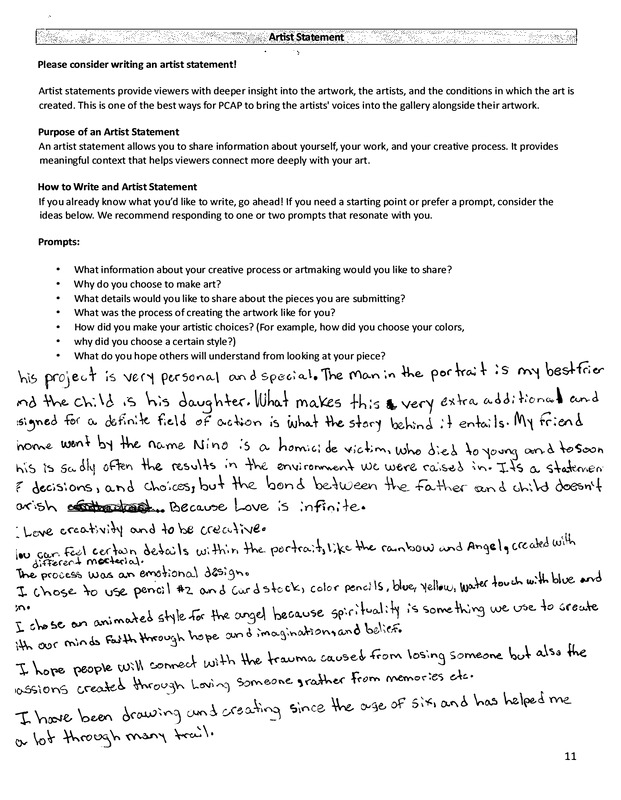 Artist Statement
Please consider writing an artist statement!
Artist statements provide viewers with deeper insight into the artwork, the artists, and the conditions in which the art is
created. This is one of the best ways for PCAP to bring the artists' voices into the gallery alongside their artwork.
Purpose of an Artist Statement
An artist statement allows you to share information about yourself, your work, and your creative process. It provides
meaningful context that helps viewers connect more deeply with your art.
How to Write and Artist Statement
If you already know what you'd like to write, go ahead! If you need a starting point or prefer a prompt, consider the
ideas below. We recommend responding to one or two prompts that resonate with you.
Prompts:
• What information about your creative process or artmaking would you like to share?
• Why do you choose to make art?
• What details would you like to share about the pieces you are submitting?
• What was the process of creating the artwork like for you?
• How did you make your artistic choices? (For example, how did you choose your colors,
• why did you choose a certain style?)
• What do you hope others will understand from looking at your piece?
his project is very personal and special. The man in the portrait is my bestfrier
nd the child is his daughter. What makes this very extra additional and
signed for a definite field of action is what the story behind it entails. My friend
whome went by the name Nino is a homicide victim, who died to young and to soon
his is sadly often the results in the environment we were raised in. Its a statemen
f decisions, and choices, but the bond between the father and child doesn't
arish Because Love is infinite.
I Love creativity and to be creative.
You can feel certain details within the portrait, like the rainbow and Angel, created with
different material.
The process was an emotional design.
I chose to use pencil #2 and cardstock, color pencils, blue, yellow, water touch with blue and
I chose an animated style for the angel because spirituality is something we use to create
ith our minds faith through hope and imagination, and belief.
I hope people will connect with the trauma caused from losing someone but also the
assions created through Loving someone, rather from memories etc.
I have been drawing and creating since the age of six, and has helped me
a lot through many trail.
11